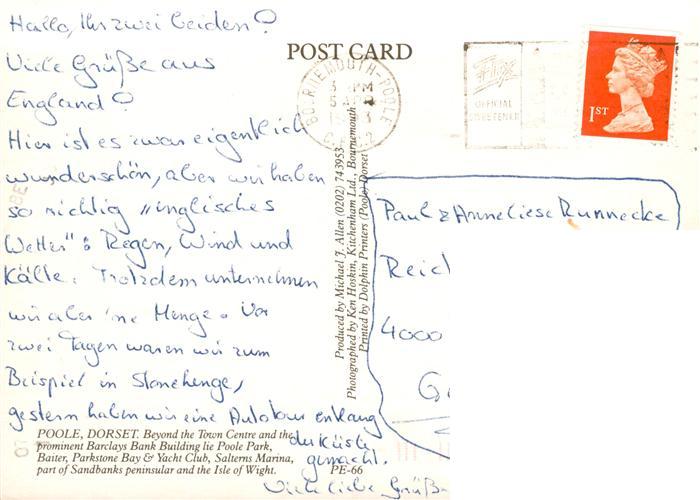 Hallo, Ihr zwei beiden!
Viele Grüße aus
England!
Hier ist es zwar eigentlich
wunderschön, aber wir haben
so richtig „englisches
Wetter": Regen, Wind und
Kälte. Trotzdem unternehmen
wir aber 'ne Menge. Vor
zwei Tagen waren wir zum
Beispiel in Stonehenge,
gestern haben wir eine Autotour entlang
der Küste
gemacht.
Viele liebe Grüße
POOLE, DORSET. Beyond the Town Centre and the
prominent Barclays Bank Building lie Poole Park,
Baiter, Parkstone Bay & Yacht Club, Salterns Marina,
part of Sandbanks peninsular and the Isle of Wight.
PE-66
POST CARD
Produced by Michael J. Allen (0202) 743953
Photographed by Ken Hoskin, Kitchenham Ltd., Bournemouth
Printed by Dolphin Printers (Poole) Dorset
BOURNEMOUTH-POOLE
OFFICIAL
SWEETENER
1ST
Paul & Anneliese Runnecke
Reic
4000
G